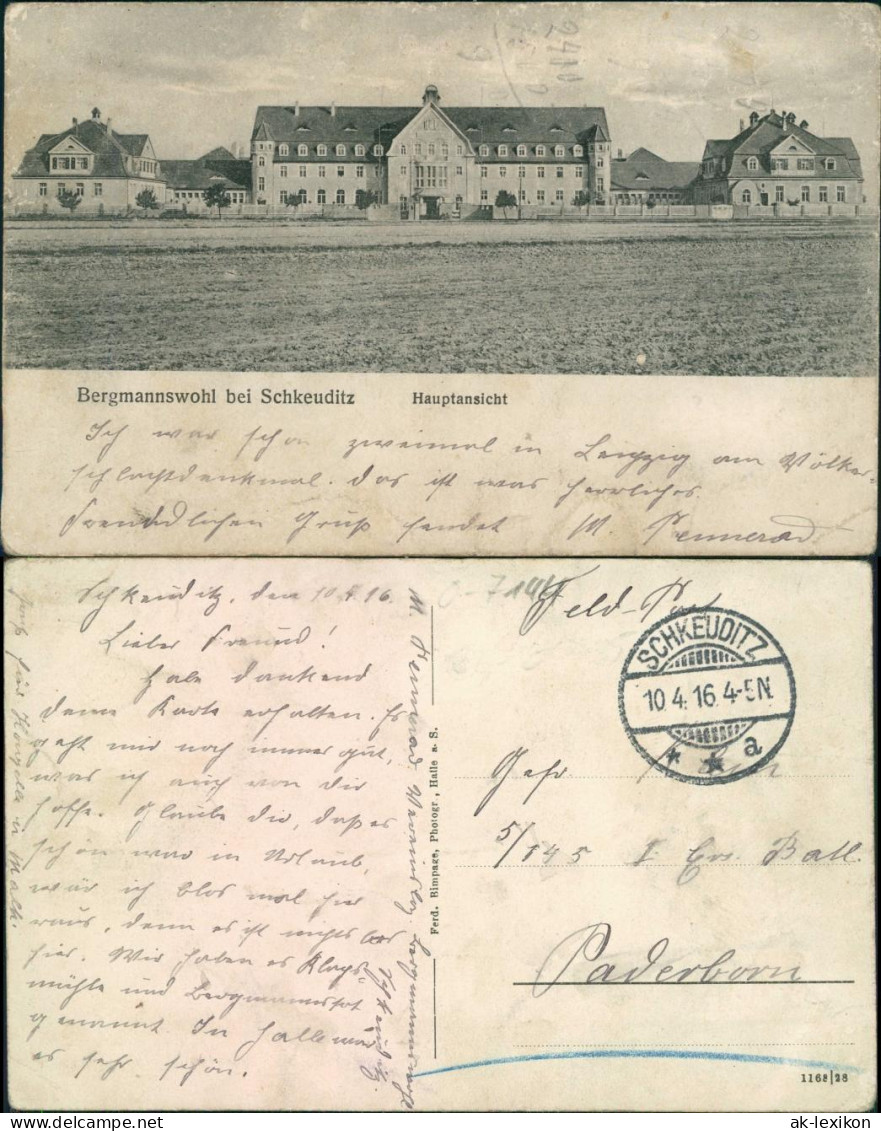 Bergmannswohl bei Schkeuditz Hauptansicht
Ich war schon zweimal in Leipzig am Völker-
schlachtdenkmal. Das ist was herrliches.
Freundlichen Gruß sendet M. Pennerad
Schkeuditz, den 10.4.16.
Lieber Freund!
Habe dankend
deine Karte erhalten. Es
geht mir noch immer gut,
was ich auch von dir
hoffe. Glaube dir, daß es
schön war in Urlaub,
wär ich blos mal hier
raus, denn es ist nichts los
hier. Wir haben es Klaps-
mühle und Bergmannstot
genannt. In Halle war
es sehr schön.
M. Pennerad
Schkeuditz.
Ferd. Rimpage, Photogr., Halle a. S.
Feld-Post
SCHKEUDITZ
10.4.16.4-5N.
* * a
Gefr
5/145 I Ers. Batl.
Paderborn
1168|28
ak-lexikon